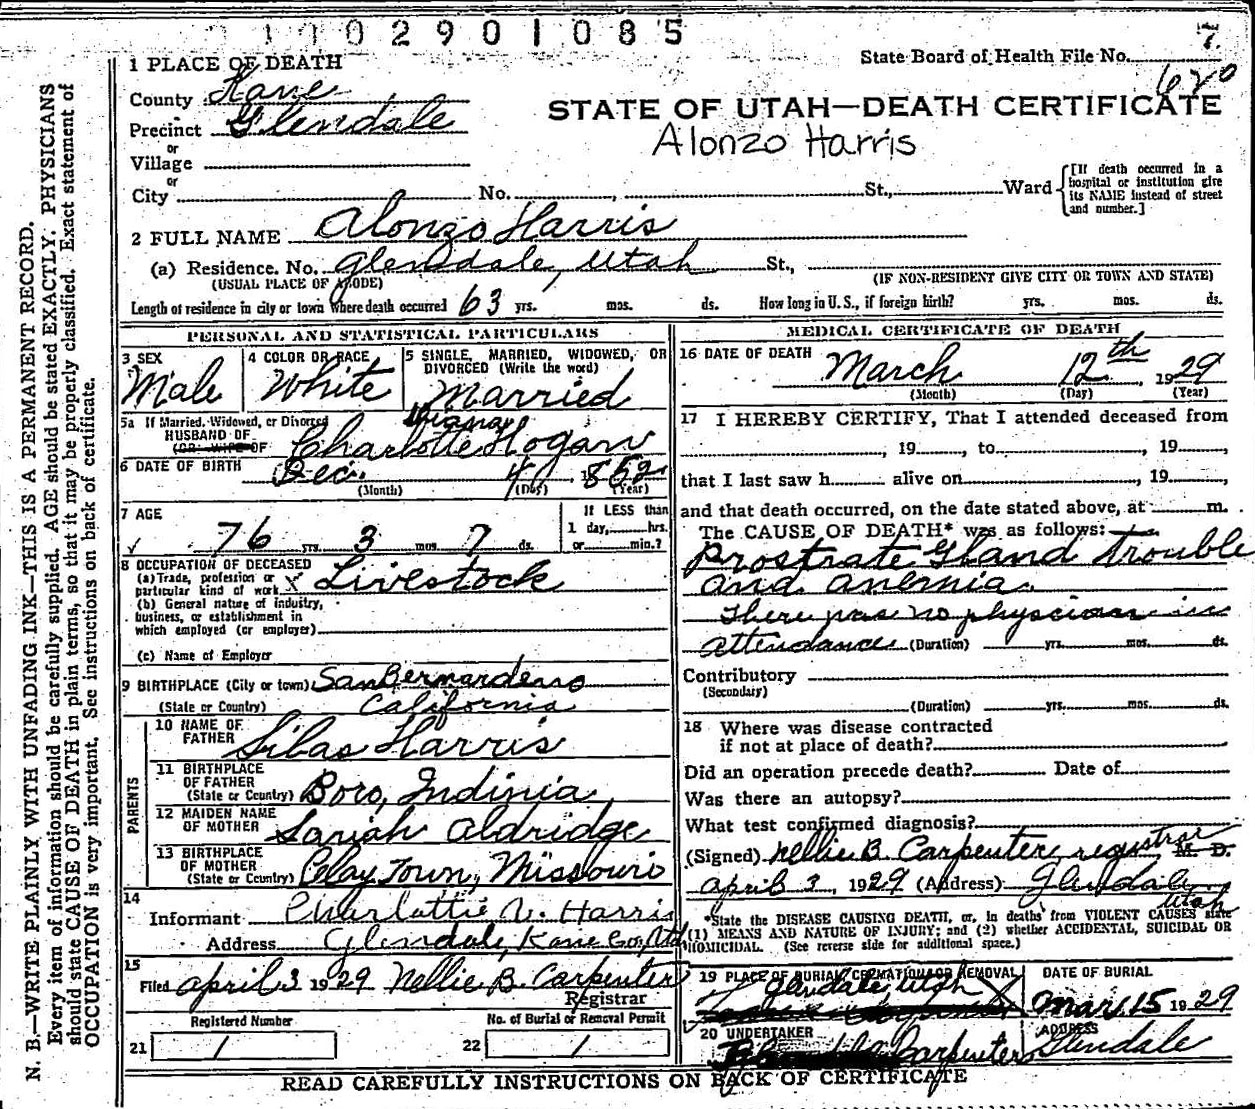 1 1 0 2 9 0 1 0 8 5
7
State Board of Health File No.
620
1 PLACE OF DEATH
County Kane
STATE OF UTAH—DEATH CERTIFICATE
Precinct Glendale
Alonzo Harris
or
Village
or
City No. , St., Ward
[If death occurred in a
hospital or institution give
its NAME instead of street
and number.]
2 FULL NAME Alonzo Harris
(a) Residence. No. Glendale, Utah St.,
(USUAL PLACE OF ABODE) (IF NON-RESIDENT GIVE CITY OR TOWN AND STATE)
Length of residence in city or town where death occurred 63 yrs. mos. ds. How long in U. S., if foreign birth? yrs. mos. ds.
PERSONAL AND STATISTICAL PARTICULARS
3 SEX
Male
4 COLOR OR RACE
White
5 SINGLE, MARRIED, WIDOWED, OR
DIVORCED (Write the word)
Married
5a If Married, Widowed, or Divorced
HUSBAND OF
(OR WIFE OF
Charlotte Hogan
6 DATE OF BIRTH Dec. 4 1852
(Month) (Day) (Year)
7 AGE
76 yrs. 3 mos. 7 ds.
If LESS than
1 day, hrs.
or min.?
8 OCCUPATION OF DECEASED
(a) Trade, profession or
particular kind of work X Livestock
(b) General nature of industry,
business, or establishment in
which employed (or employer)
(c) Name of Employer
9 BIRTHPLACE (City or town) San Bernardeno
(State or Country) California
PARENTS
10 NAME OF
FATHER Silas Harris
11 BIRTHPLACE
OF FATHER
(State or Country) Boro, Indinia
12 MAIDEN NAME
OF MOTHER Sariah Aldridge
13 BIRTHPLACE
OF MOTHER
(State or Country) Clay Town, Missouri
14
Informant Charlottie V. Harris
Address Glendale, Kane Co, Utah
15
Filed April 3 1929 Nellie B. Carpenter
Registrar
Registered Number
21 1
No. of Burial or Removal Permit
22 1
MEDICAL CERTIFICATE OF DEATH
16 DATE OF DEATH
March 12th, 1929
(Month) (Day) (Year)
17 I HEREBY CERTIFY, That I attended deceased from
, 19 , to , 19 ,
that I last saw h alive on , 19 ,
and that death occurred, on the date stated above, at m.
The CAUSE OF DEATH* was as follows:
Prostrate Gland trouble
and anemia.
There was no physician in
attendance (Duration) yrs. mos. ds.
Contributory
(Secondary)
(Duration) yrs. mos. ds.
18 Where was disease contracted
if not at place of death?
Did an operation precede death? Date of
Was there an autopsy?
What test confirmed diagnosis?
(Signed) Nellie B. Carpenter, registrar M. D.
April 3, 1929 (Address) Glendale,
Utah
*State the DISEASE CAUSING DEATH, or, in deaths from VIOLENT CAUSES state
(1) MEANS AND NATURE OF INJURY; and (2) whether ACCIDENTAL, SUICIDAL OR
HOMICIDAL. (See reverse side for additional space.)
19 PLACE OF BURIAL CREMATION OR REMOVAL
Glendale, Utah
DATE OF BURIAL
Mar. 15 1929
20 UNDERTAKER
Carpenter
ADDRESS
Glendale
READ CAREFULLY INSTRUCTIONS ON BACK OF CERTIFICATE
N. B.—WRITE PLAINLY, WITH UNFADING INK—THIS IS A PERMANENT RECORD.
Every item of information should be carefully supplied. AGE should be stated EXACTLY. PHYSICIANS
should state CAUSE OF DEATH in plain terms, so that it may be properly classified. Exact statement of
OCCUPATION is very important. See instructions on back of certificate.